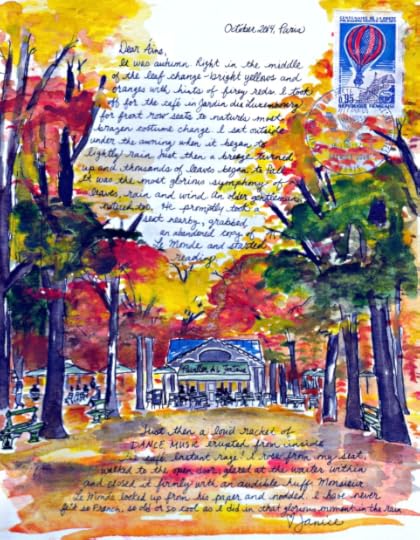 October 2014, Paris
Dear Áine,
It was autumn. Right in the middle
of the leaf change - bright yellows and
oranges with hints of firey reds. I took
off for the café in Jardin du Luxembourg
for front row seats to nature's most
brazen costume change. I sat outside
under the awning when it began to
lightly rain. Just then a breeze turned
up and thousands of leaves began to fall.
It was the most glorious symphony of
leaves, rain and wind. An older gentleman
noticed too. He promptly took a
seat nearby, grabbed
an abandoned copy of
Le Monde and started
reading.
Pavillon de la Fontaine
Just then a loud racket of
DANCE MUSIC erupted from inside
the café. Instant rage! I rose from my seat,
walked to the open door, glared at the waiter within
and closed it firmly with an audible huff. Monsieur
Le Monde looked up from his paper and nodded. I have never
felt so French, so old or so cool as I did in that glorious moment in the rain
Janice
0,95
REPUBLIQUE FRANÇAISE